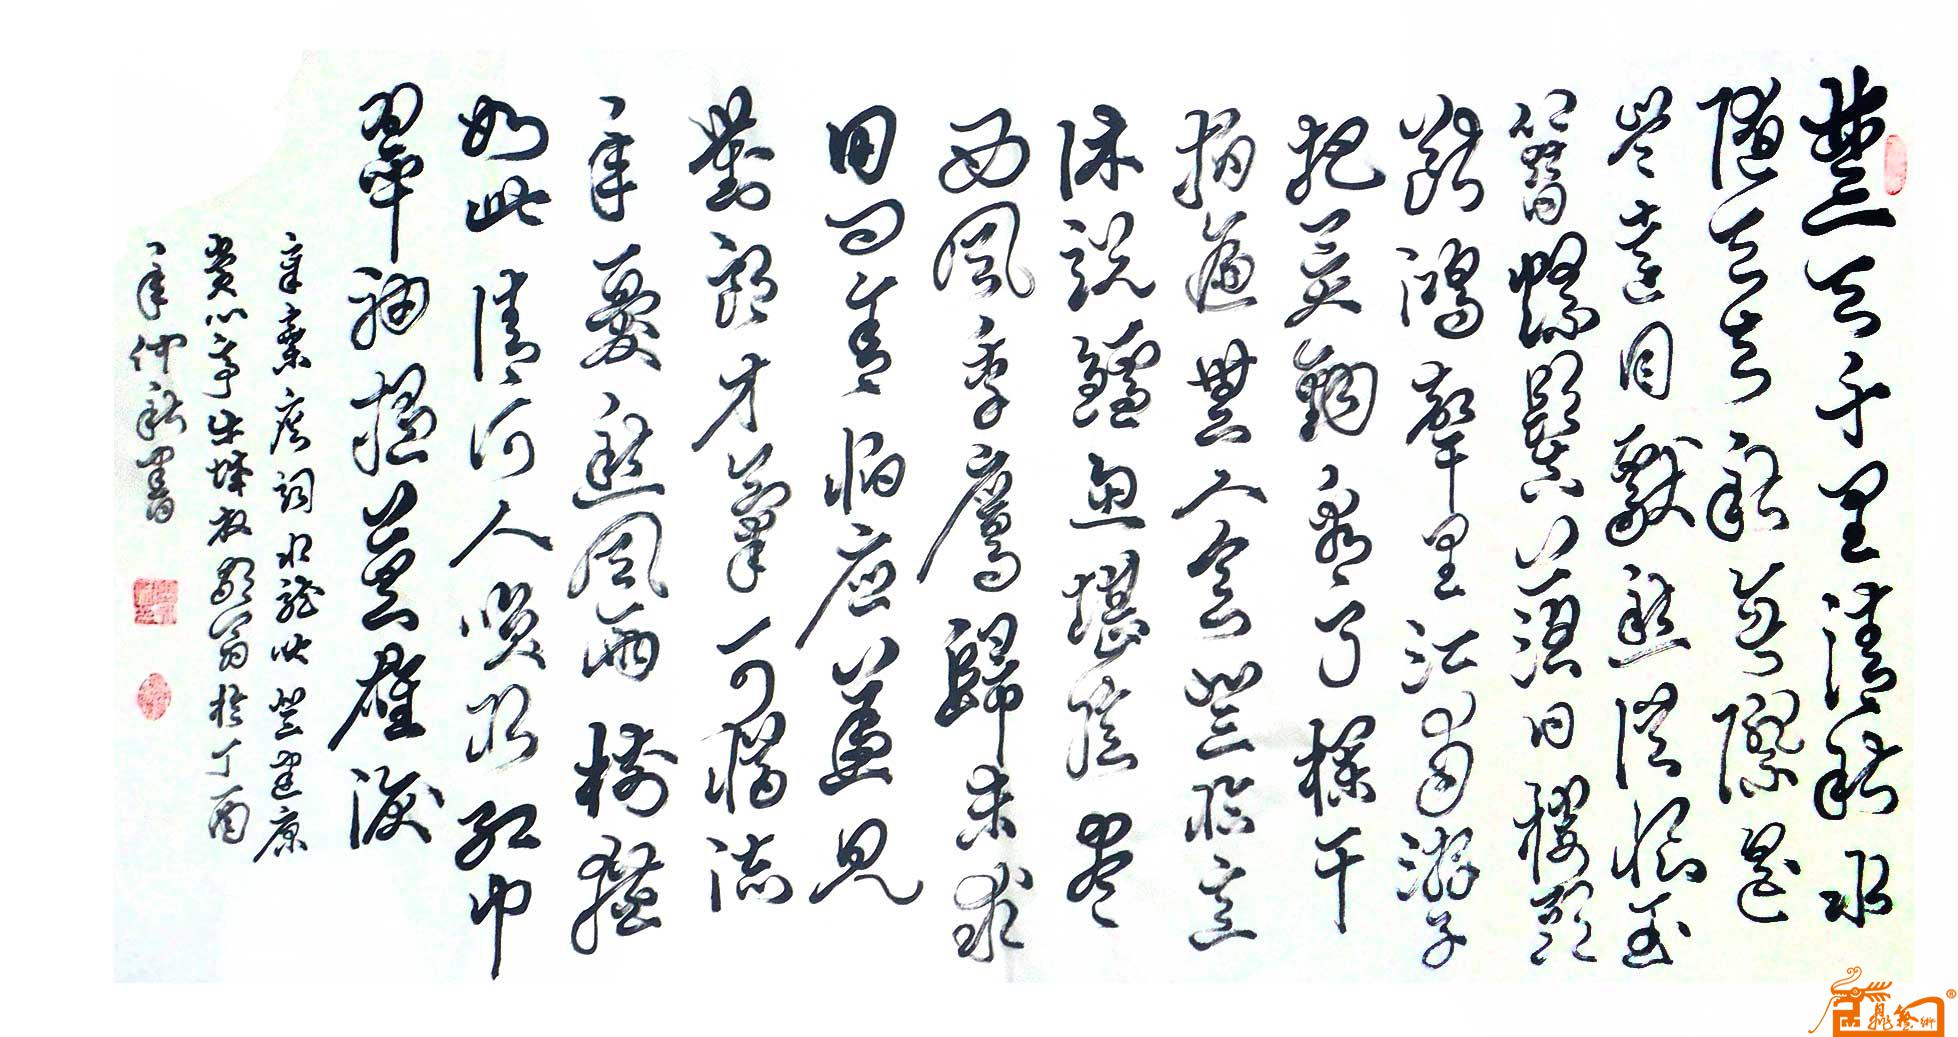 楚天千里清秋水
隨天去秋無際遥
岑遠目獻愁供恨玉
簪螺髻落日樓頭
斷鴻聲里江南游子
把吴鉤看了欄干
拍遍無人會登臨意
休説鱸魚堪膾盡
西風季鷹歸未求
田問舍怕應羞見
劉郎才氣可惜流
年憂愁風雨樹猶
如此倩何人唤取紅巾
翠袖揾英雄淚
辛棄疾詞水龍吟登建康
賞心亭翁於丁酉
年仲秋書